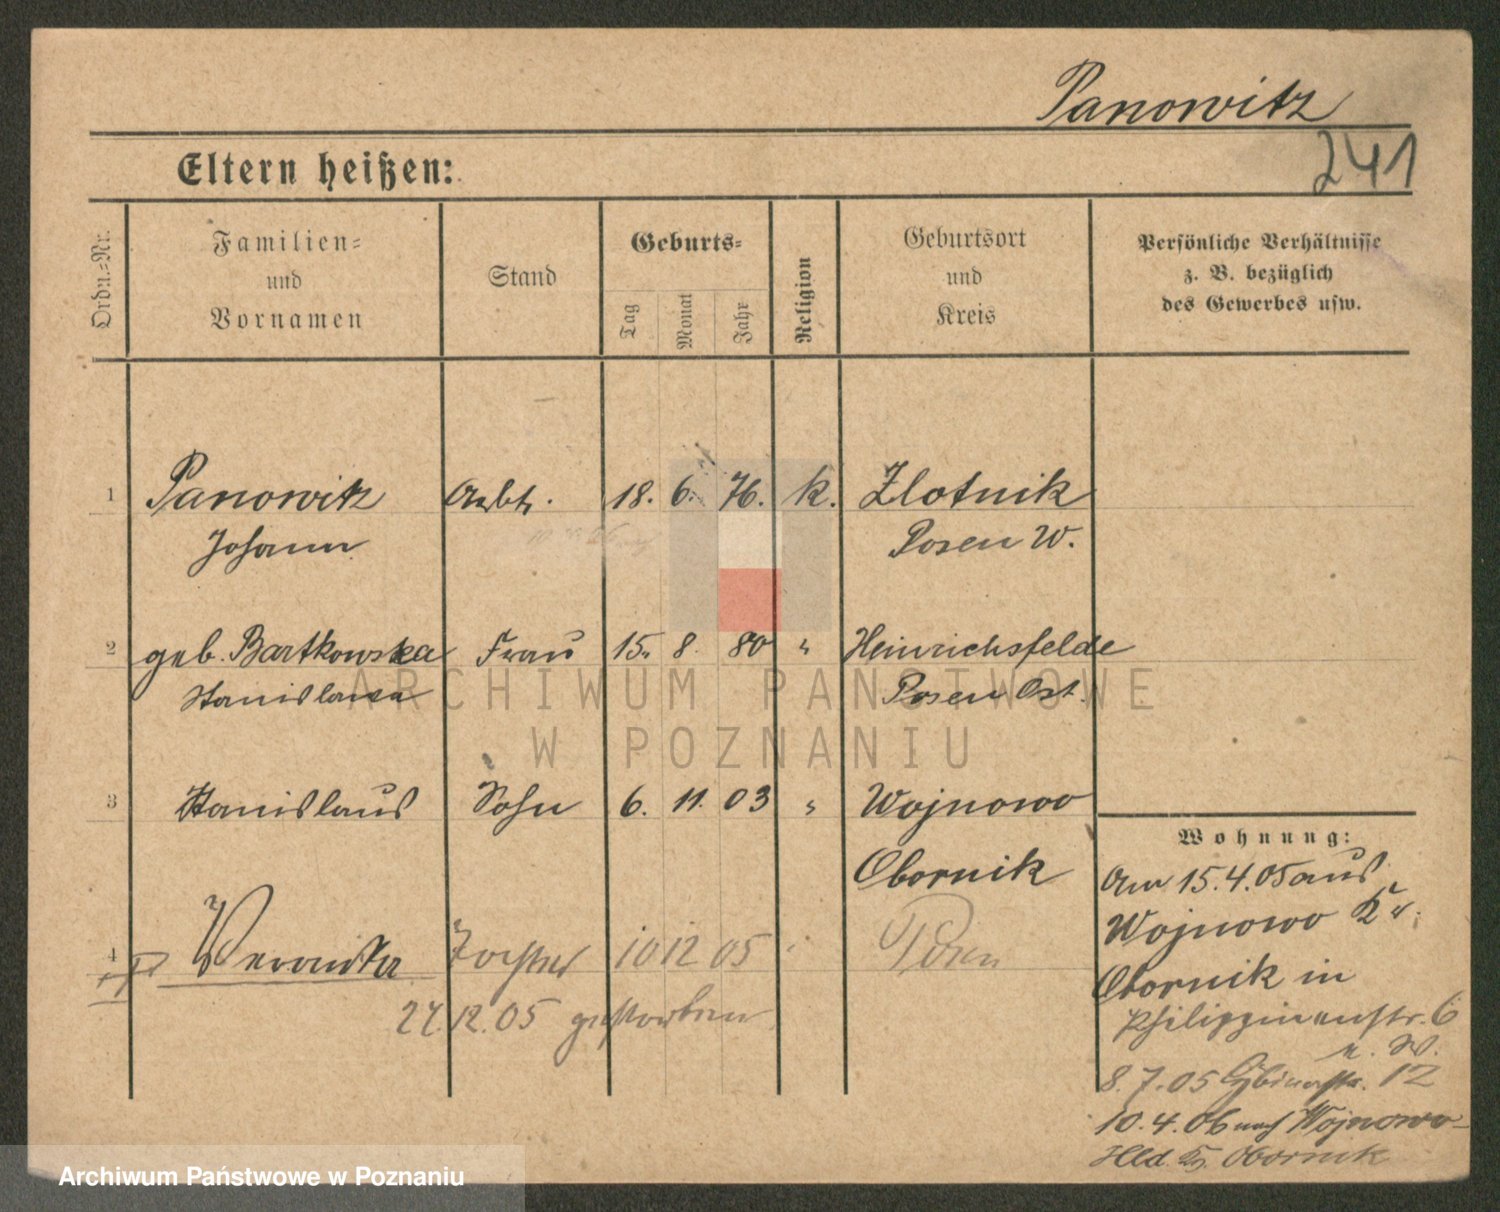 Panowitz
241
Eltern heißen:
Ordn.-Nr.
Familien-
und
Vornamen
Stand
Geburts-
Tag
Monat
Jahr
Religion
Geburtsort
und
Kreis
Persönliche Verhältnisse
z. B. bezüglich
des Gewerbes usw.
1 Panowitz Arbt. 18. 6. 76. k. Zlotnik
Johann Posen W.
2 geb. Bartkowska Frau 15. 8. 80 " Heinrichsfelde
Stanislawa Posen Ost.
3 Stanislaus Sohn 6. 11. 03 " Wojnowo
Obornik
4 Veronika Tochter 10 12 05 Posen
27.12.05 gestorben
Wohnung:
Am 15.4.05 aus
Wojnowo Kr.
Obornik in
Philippinenstr. 6
8.7.05 12
10.4.06 nach Wojnowo-
Hld. Kr. Obornik
ARCHIWUM PAŃSTWOWE
W POZNANIU
Archiwum Państwowe w Poznaniu